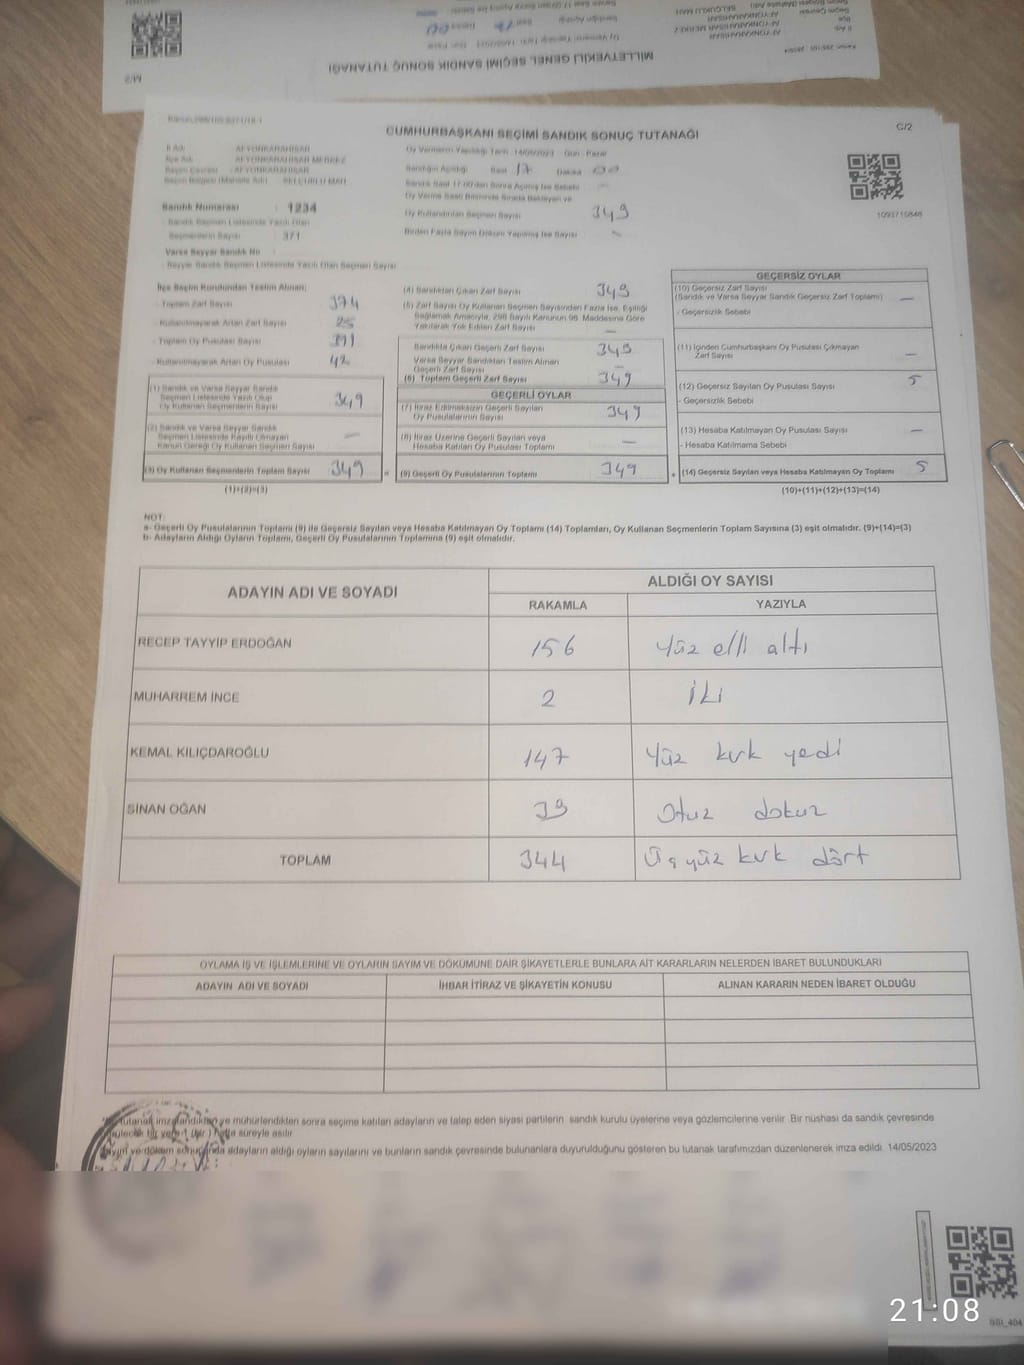 MİLLETVEKİLİ GENEL SEÇİMİ SANDIK SONUÇ TUTANAĞI
M/2
CUMHURBAŞKANI SEÇİMİ SANDIK SONUÇ TUTANAĞI
C/2
İl Adı : AFYONKARAHİSAR
İlçe Adı : AFYONKARAHİSAR MERKEZ
Seçim Çevresi : AFYONKARAHİSAR
Seçim Bölgesi (Mahalle Adı) : SELÇUKLU MAH.
Sandık Numarası : 1234
- Sandık Seçmen Listesinde Yazılı Olan
Seçmenlerin Sayısı : 371
Varsa Seyyar Sandık No :
- Seyyar Sandık Seçmen Listesinde Yazılı Olan Seçmen Sayısı
Oy Vermenin Yapıldığı Tarih : 14/05/2023 Gün : Pazar
Sandığın Açıldığı Saat 17 Dakika 00
Sandık Saat 17:00'dan Sonra Açılmış İse Sebebi –
Oy Verme Saati Bitiminde Sırada Bekleyen ve
Oy Kullandırılan Seçmen Sayısı 349
Birden Fazla Sayım Döküm Yapılmış İse Sayısı –
1093710848
İlçe Seçim Kurulundan Teslim Alınan;
- Toplam Zarf Sayısı 374
- Kullanılmayarak Artan Zarf Sayısı 25
- Toplam Oy Pusulası Sayısı 391
- Kullanılmayarak Artan Oy Pusulası 42
(1) Sandık ve Varsa Seyyar Sandık
Seçmen Listesinde Yazılı Olup
Oy Kullanan Seçmenlerin Sayısı 349
(2) Sandık ve Varsa Seyyar Sandık
Seçmen Listesinde Kayıtlı Olmayan
Kanun Gereği Oy Kullanan Seçmen Sayısı –
(3) Oy Kullanan Seçmenlerin Toplam Sayısı 349 =
(1)+(2)=(3)
(4) Sandıktan Çıkan Zarf Sayısı 349
(5) Zarf Sayısı Oy Kullanan Seçmen Sayısından Fazla İse, Eşitliği
Sağlamak Amacıyla, 298 Sayılı Kanunun 98. Maddesine Göre
Yakılarak Yok Edilen Zarf Sayısı –
Sandıkta Çıkan Geçerli Zarf Sayısı 349
Varsa Seyyar Sandıktan Teslim Alınan
Geçerli Zarf Sayısı –
(6) Toplam Geçerli Zarf Sayısı 349
GEÇERLİ OYLAR
(7) İtiraz Edilmeksizin Geçerli Sayılan
Oy Pusulalarının Sayısı 349
(8) İtiraz Üzerine Geçerli Sayılan veya
Hesaba Katılan Oy Pusulası Toplamı –
(9) Geçerli Oy Pusulalarının Toplamı 349 +
GEÇERSİZ OYLAR
(10) Geçersiz Zarf Sayısı
(Sandık ve Varsa Seyyar Sandık Geçersiz Zarf Toplamı) –
- Geçersizlik Sebebi
(11) İçinden Cumhurbaşkanı Oy Pusulası Çıkmayan
Zarf Sayısı –
(12) Geçersiz Sayılan Oy Pusulası Sayısı 5
- Geçersizlik Sebebi
(13) Hesaba Katılmayan Oy Pusulası Sayısı –
- Hesaba Katılmama Sebebi
(14) Geçersiz Sayılan veya Hesaba Katılmayan Oy Toplamı 5
(10)+(11)+(12)+(13)=(14)
NOT:
a- Geçerli Oy Pusulalarının Toplamı (9) ile Geçersiz Sayılan veya Hesaba Katılmayan Oy Toplamı (14) Toplamları, Oy Kullanan Seçmenlerin Toplam Sayısına (3) eşit olmalıdır. (9)+(14)=(3)
b- Adayların Aldığı Oyların Toplamı, Geçerli Oy Pusulalarının Toplamına (9) eşit olmalıdır.
ADAYIN ADI VE SOYADI ALDIĞI OY SAYISI
RAKAMLA YAZIYLA
RECEP TAYYİP ERDOĞAN 156 Yüz elli altı
MUHARREM İNCE 2 İki
KEMAL KILIÇDAROĞLU 147 Yüz kırk yedi
SİNAN OĞAN 39 Otuz dokuz
TOPLAM 344 Üçyüz kırk dört
OYLAMA İŞ VE İŞLEMLERİNE VE OYLARIN SAYIM VE DÖKÜMÜNE DAİR ŞİKAYETLERLE BUNLARA AİT KARARLARIN NELERDEN İBARET BULUNDUKLARI
ADAYIN ADI VE SOYADI İHBAR İTİRAZ VE ŞİKAYETİN KONUSU ALINAN KARARIN NEDEN İBARET OLDUĞU
tutanak imzalandıktan ve mühürlendikten sonra seçime katılan adayların ve talep eden siyasi partilerin sandık kurulu üyelerine veya gözlemcilerine verilir. Bir nüshası da sandık çevresinde
bir yere 1 (bir) hafta süreyle asılır.
Sayım ve döküm sonucunda adayların aldığı oyların sayılarını ve bunların sandık çevresinde bulunanlara duyurulduğunu gösteren bu tutanak tarafımızdan düzenlenerek imza edildi. 14/05/2023
21:08
SSI_404